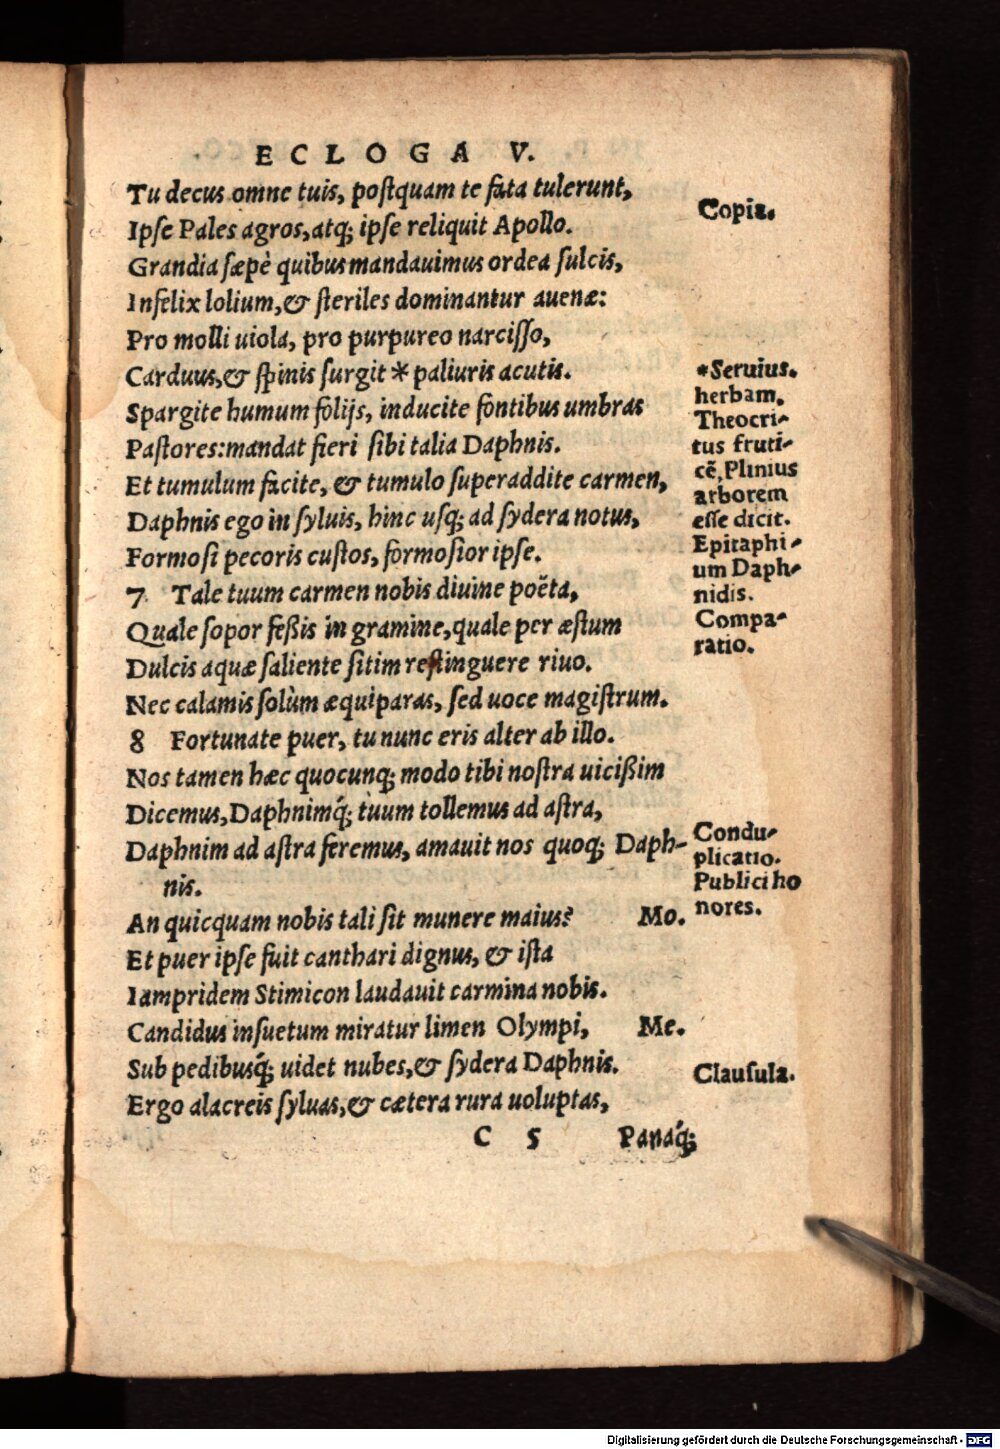 ECLOGA V.
Tu decus omne tuis, poſtquam te fata tulerunt,
Ipſe Pales agros,atq; ipſe reliquit Apollo.
Grandia ſæpè quibus mandauimus ordea ſulcis,
Infelix lolium,& ſteriles dominantur auenæ:
Pro molli uiola, pro purpureo narciſſo,
Carduus,& ſpinis ſurgit * paliuris acutis.
Spargite humum folijs, inducite fontibus umbras
Paſtores:mandat fieri ſibi talia Daphnis.
Et tumulum facite, & tumulo ſuperaddite carmen,
Daphnis ego in ſyluis, hinc uſq; ad ſydera notus,
Formoſi pecoris cuſtos, formoſior ipſe.
7 Tale tuum carmen nobis diuine poëta,
Quale ſopor feßis in gramine,quale per æſtum
Dulcis aquæ ſaliente ſitim reſtinguere riuo.
Nec calamis ſolùm æquiparas, ſed uoce magiſtrum.
8 Fortunate puer, tu nunc eris alter ab illo.
Nos tamen hæc quocunq; modo tibi noſtra uicißim
Dicemus,Daphnimq́; tuum tollemus ad aſtra,
Daphnim ad aſtra feremus, amauit nos quoq; Daph-
nis.
An quicquam nobis tali ſit munere maius? Mo.
Et puer ipſe fuit canthari dignus, & iſta
Iampridem Stimicon laudauit carmina nobis.
Candidus inſuetum miratur limen Olympi, Me.
Sub pedibusq́; uidet nubes,& ſydera Daphnis.
Ergo alacreis ſyluas,& cætera rura uoluptas,
C 5 Panaq́;
Copia.
*Seruius.
herbam,
Theocri-
tus fruti-
cē,Plinius
arborem
eſſe dicit.
Epitaphi-
um Daph-
nidis.
Compa-
ratio.
Condu-
plicatio.
Publici ho
nores.
Clauſula.
Digitalisierung gefördert durch die Deutsche Forschungsgemeinschaft - DFG